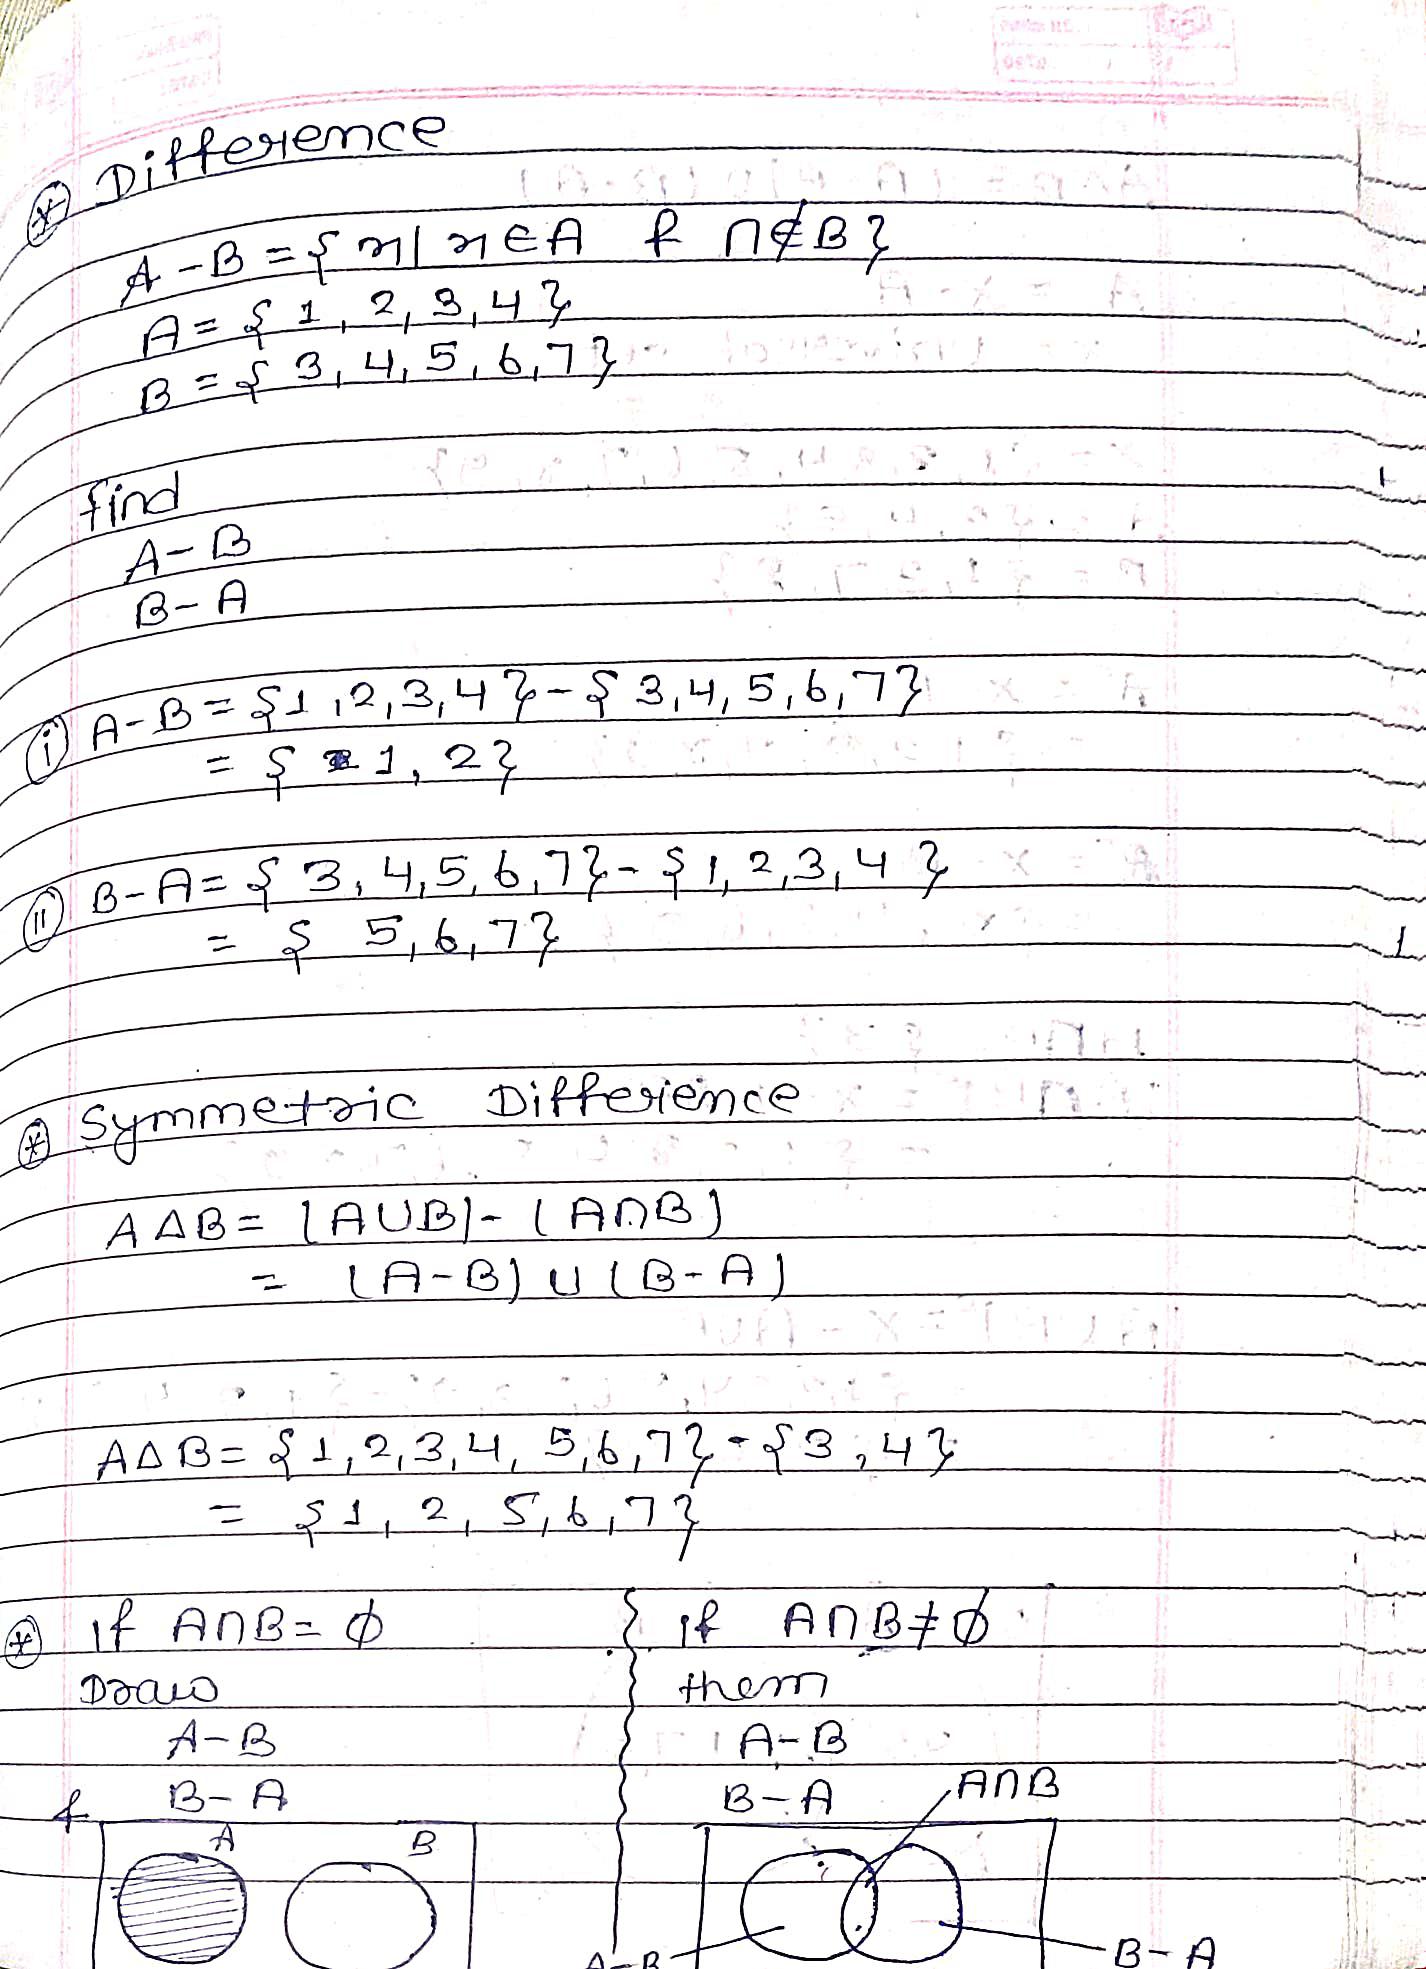 * Difference
A - B = { x | x ∈ A & n ∉ B }
A = { 1, 2, 3, 4 }
B = { 3, 4, 5, 6, 7 }
find
A - B
B - A
(i) A - B = { 1, 2, 3, 4 } - { 3, 4, 5, 6, 7 }
= { 1, 2 }
(ii) B - A = { 3, 4, 5, 6, 7 } - { 1, 2, 3, 4 }
= { 5, 6, 7 }
* Symmetric Difference
A Δ B = (A ∪ B) - (A ∩ B)
= (A - B) ∪ (B - A)
A Δ B = { 1, 2, 3, 4, 5, 6, 7 } - { 3, 4 }
= { 1, 2, 5, 6, 7 }
* if A ∩ B = ϕ
Draw
A - B
B - A
A B
if A ∩ B ≠ ϕ
them
A - B
B - A
A ∩ B
A - B
B - A